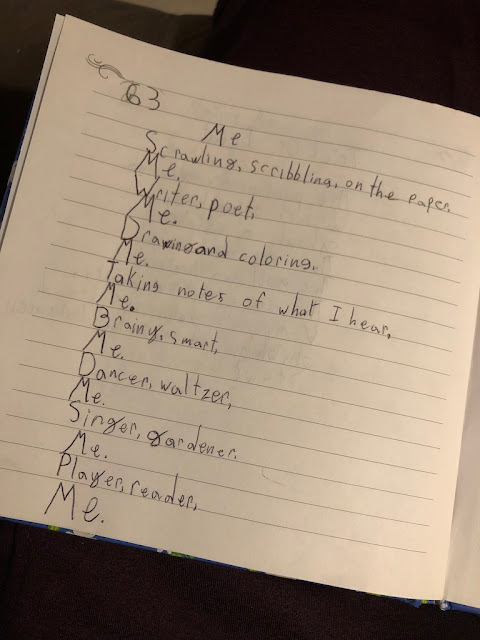 63
Me
Scrawling, scribbling, on the paper,
Me.
Writer, poet,
Me.
Drawing and coloring.
Me.
Taking notes of what I hear,
Me.
Brainy, smart,
Me.
Dancer, waltzer,
Me.
Singer, gardener.
Me.
Player, reader,
Me.